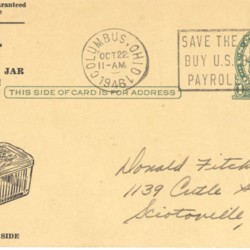 uaranteed
COLUMBUS, OHIO
OCT 22
11-AM
1946
SAVE THE
BUY U.S.
PAYROL
JAR
THIS SIDE OF CARD IS FOR ADDRESS
Donald Fitch
1139
Sciotoville
SIDE